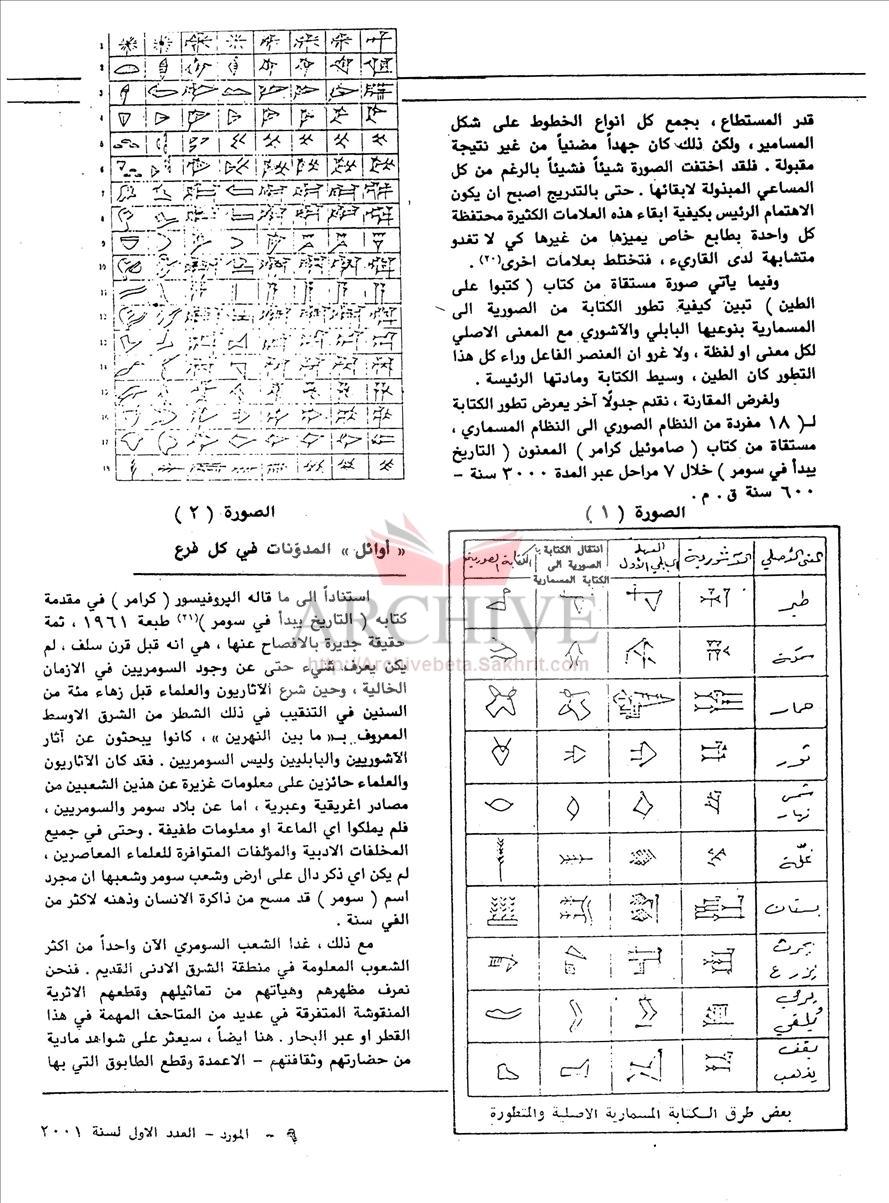 قدر المستطاع ، بجمع كل انواع الخطوط على شكل
المسامير ، ولكن ذلك كان جهداً مضنياً من غير نتيجة
مقبولة . فلقد اختفت الصورة شيئاً فشيئاً بالرغم من كل
المساعي المبذولة لابقائها . حتى بالتدريج اصبح ان يكون
الاهتمام الرئيس بكيفية ابقاء هذه العلامات الكثيرة محتفظة
كل واحدة بطابع خاص يميزها من غيرها كي لا تغدو
متشابهة لدى القاريء ، فتختلط بعلامات اخرى(٢٠) .
وفيما يأتي صورة مستقاة من كتاب ( كتبوا على
الطين ) تبين كيفية تطور الكتابة من الصورية الى
المسمارية بنوعيها البابلي والآشوري مع المعنى الاصلي
لكل معنى او لفظة ، ولا غرو ان العنصر الفاعل وراء كل هذا
التطور كان الطين ، وسيط الكتابة ومادتها الرئيسة .
ولغرض المقارنة ، نقدم جدولًا آخر يعرض تطور الكتابة
لـ( ١٨ مفردة من النظام الصوري الى النظام المسماري ،
مستقاة من كتاب ( صاموئيل كرامر ) المعنون ( التاريخ
يبدأ في سومر ) خلال ٧ مراحل عبر المدة ٣٠٠٠ سنة -
٦٠٠ سنة ق . م .
الصورة ( ١ )
المعنى الأصلي الآشورية العهد البابلي الأول انتقال الكتابة الصورية الى الكتابة المسمارية الكتابة الصورية
طير
سمكة
حمار
ثور
شمس
نهار
غلّة
بستان
يحرث
يزرع
يرمي
يُلقي
يقف
يذهب
بعض طرق الكتابة المسمارية الاصلية والمتطورة
1
2
3
4
5
6
7
8
9
10
11
12
13
14
15
16
17
18
الصورة ( ٢ )
« أوائل » المدوّنات في كل فرع
استناداً الى ما قاله البروفيسور ( كرامر ) في مقدمة
كتابه ( التاريخ يبدأ في سومر )(٢١) طبعة ١٩٦١ ، ثمة
حقيقة جديرة بالافصاح عنها ، هي انه قبل قرن سلف ، لم
يكن يعرف شيء حتى عن وجود السومريين في الازمان
الخالية ، وحين شرع الآثاريون والعلماء قبل زهاء مئة من
السنين في التنقيب في ذلك الشطر من الشرق الاوسط
المعروف بـ« ما بين النهرين » ، كانوا يبحثون عن آثار
الآشوريين والبابليين وليس السومريين . فقد كان الآثاريون
والعلماء حائزين على معلومات غزيرة عن هذين الشعبين من
مصادر اغريقية وعبرية ، اما عن بلاد سومر والسومريين ،
فلم يملكوا اي الماعة او معلومات طفيفة . وحتى في جميع
المخلفات الادبية والمؤلفات المتوافرة للعلماء المعاصرين ،
لم يكن اي ذكر دال على ارض وشعب سومر وشعبها ان مجرد
اسم ( سومر ) قد مسح من ذاكرة الانسان وذهنه لاكثر من
الفي سنة .
مع ذلك ، غدا الشعب السومري الآن واحداً من اكثر
الشعوب المعلومة في منطقة الشرق الادنى القديم . فنحن
نعرف مظهرهم وهياتهم من تماثيلهم وقطعهم الاثرية
المنقوشة المتفرقة في عديد من المتاحف المهمة في هذا
القطر او عبر البحار . هنا ايضاً ، سيعثر على شواهد مادية
من حضارتهم وثقافتهم - الاعمدة وقطع الطابوق التي بها
ARCHIVE
http://Archivebeta.Sakhrit.com
٩ - المورد - العدد الاول لسنة ٢٠٠١